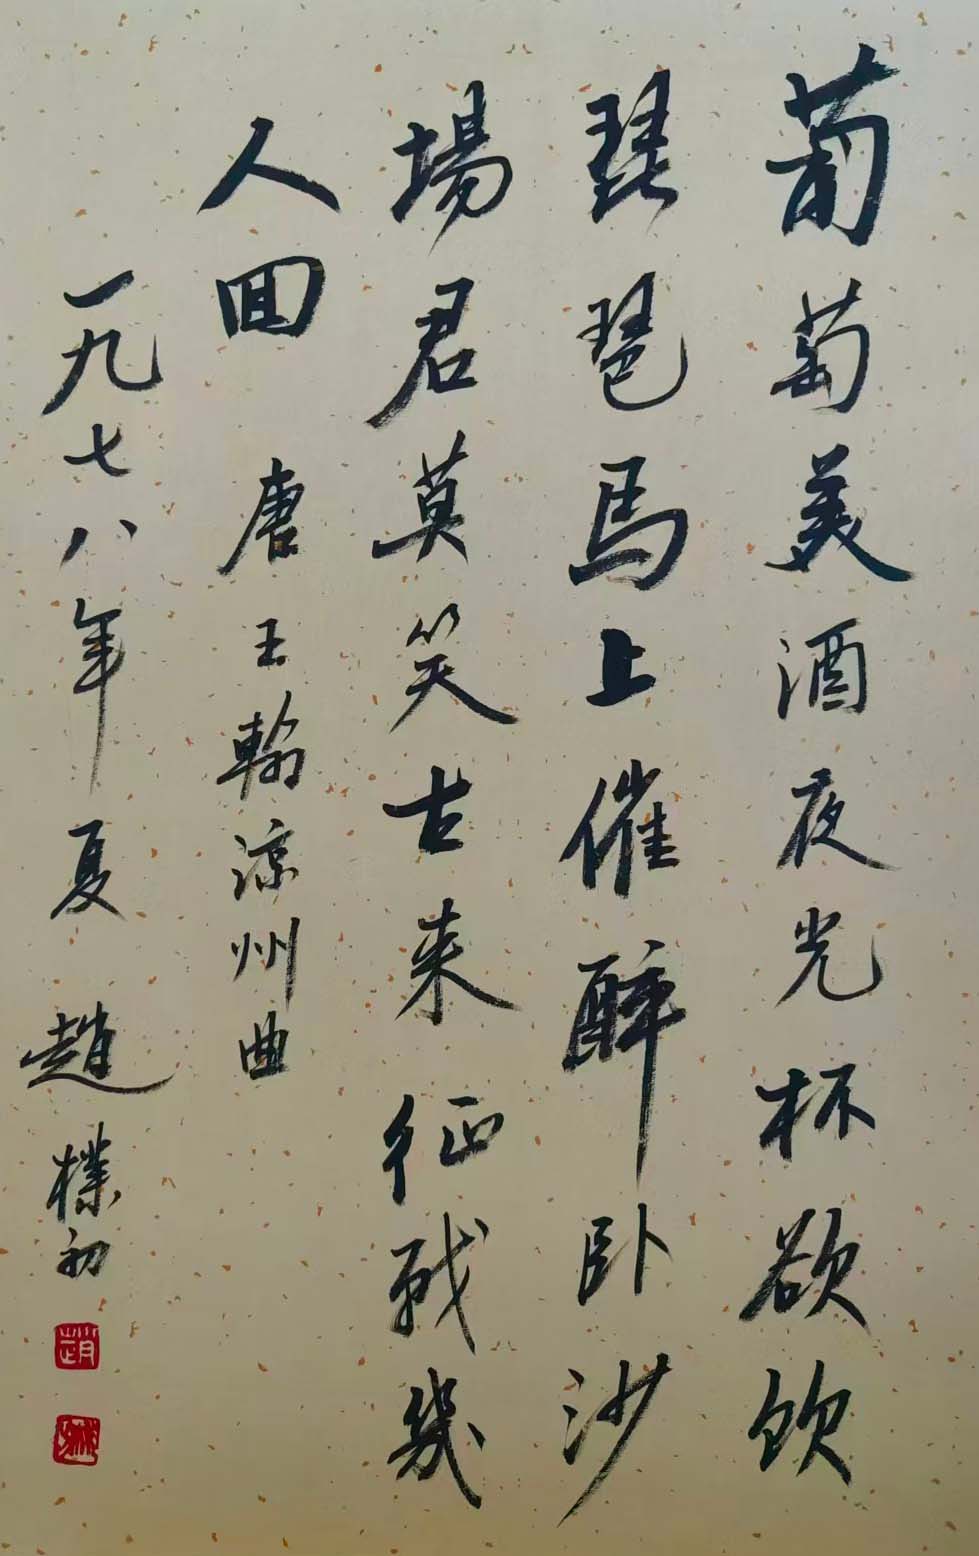 葡萄美酒夜光杯欲飲
琵琶馬上催醉卧沙
場君莫笑古来征戰幾
人回 唐王翰涼州曲
一九七八年夏 趙樸初
趙